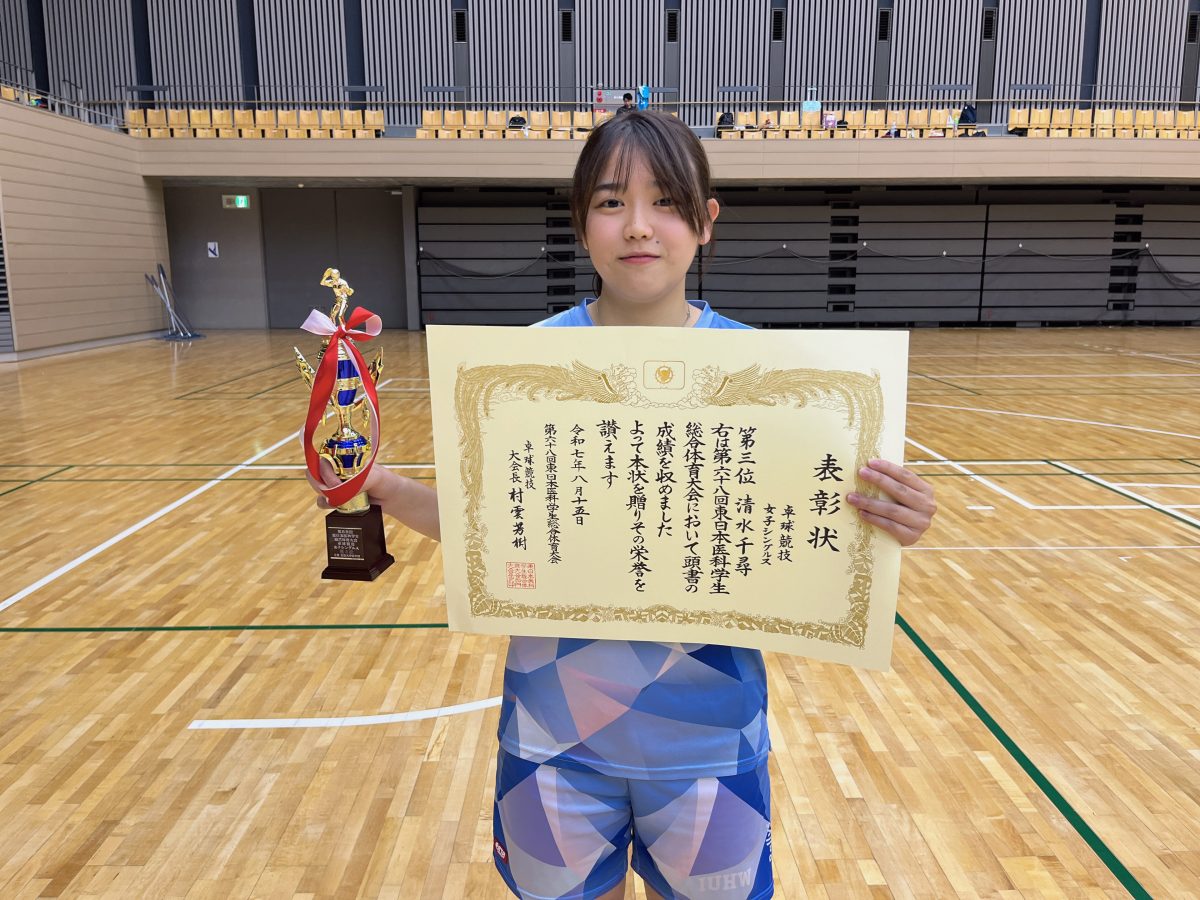 表彰状
卓球競技
女子シングルス
第三位 清水千尋
右は第六十八回東日本医科学生
総合体育大会において頭書の
成績を収めました
よって本状を贈りその栄誉を
讃えます
令和七年八月十五日
第六十八回東日本医科学生総合体育大会
卓球競技
大会長 村雲芳樹
IUHW